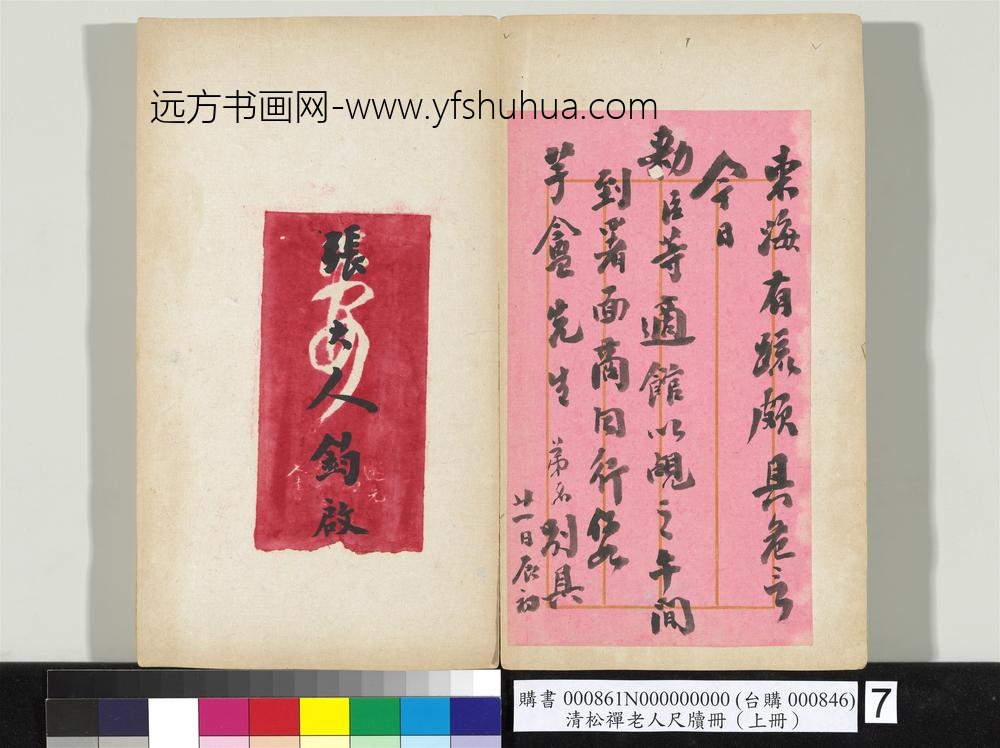 远方书画网-www.yfshuhua.com
東海有疏頗具危言
今日
勅臣等適館以覘之午間
到署面商同行
芋盦先生 弟名別具
廿一日辰初
張大人鈞啟
購書 000861N000000000 (台購 000846)
清松禪老人尺牘冊（上冊）
7